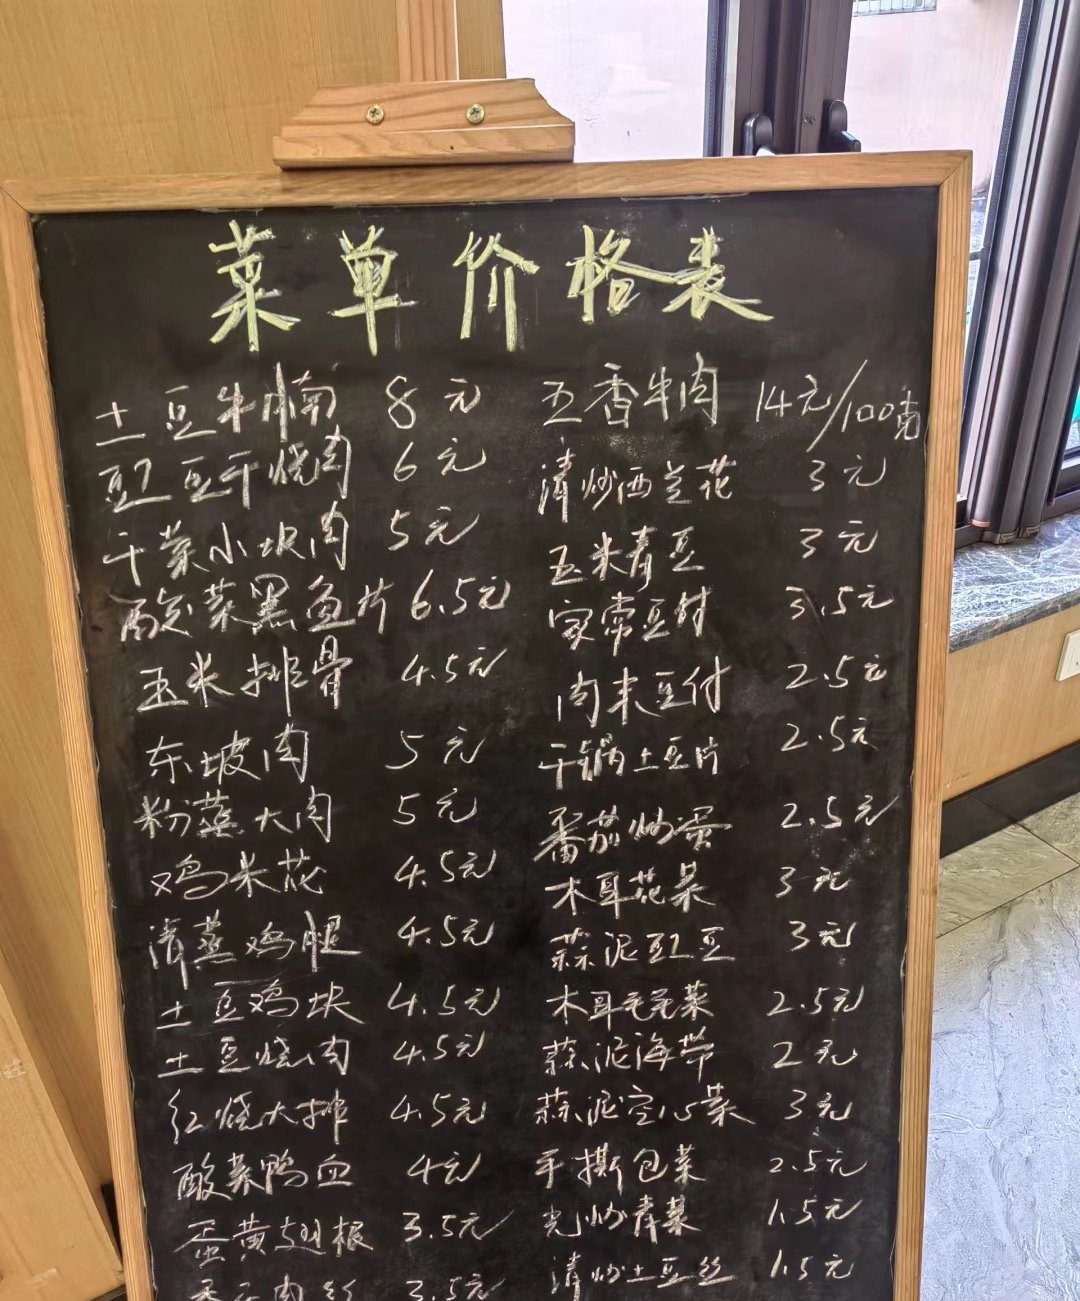 菜单价格表
土豆牛腩 8元
豇豆干烧肉 6元
干菜小块肉 5元
酸菜黑鱼片 6.5元
玉米排骨 4.5元
东坡肉 5元
粉蒸大肉 5元
鸡米花 4.5元
清蒸鸡腿 4.5元
土豆鸡块 4.5元
土豆烧肉 4.5元
红烧大排 4.5元
酸菜鸭血 4元
蛋黄翅根 3.5元
肉丝 3.5元
五香牛肉 14元/100克
清炒西兰花 3元
玉米青豆 3元
家常豆付 3.5元
肉末豆付 2.5元
干锅土豆片 2.5元
番茄炒蛋 2.5元
木耳花菜 3元
蒜泥豇豆 3元
木耳毛毛菜 2.5元
蒜泥海带 2元
蒜泥空心菜 3元
手撕包菜 2.5元
光炒青菜 1.5元
清炒土豆丝 1.5元